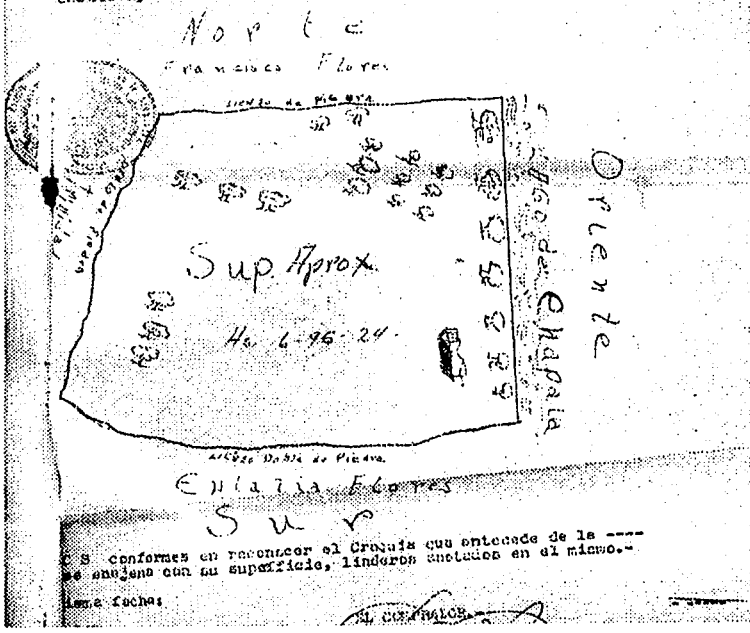 Norte
Francisco Flores
lienzo de Piedra
Oriente
Lago de Chapala
Sup. Aprox.
Ha. 6-96-24.
Lienzo Doble de Piedra
Eulalia Flores
Sur
conformes en reconocer el Croquis que antecede de la ----
se enajena con su superficie, linderos anotados en el mismo.-
fecha:
EL COMPRADOR.